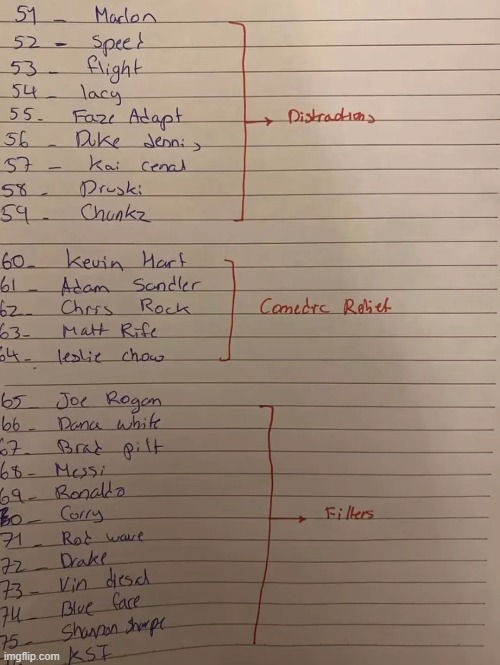 51 - Marlon
52 - Speed
53 - flight
54 - lacy
55 - Faze Adapt
56 - Duke Dennis
57 - Kai cenat
58 - Druski
59 - Chunkz
Distractions
60 - Kevin Hart
61 - Adam Sandler
62 - Chris Rock
63 - Matt Rife
64 - leslie chow
Comedic Relief
65 - Joe Rogan
66 - Dana white
67 - Brad pitt
68 - Messi
69 - Ronaldo
70 - Curry
71 - Rod wave
72 - Drake
73 - Vin diesel
74 - Blue face
75 - Shannon sharpe
KSI
Fillers
imgflip.com